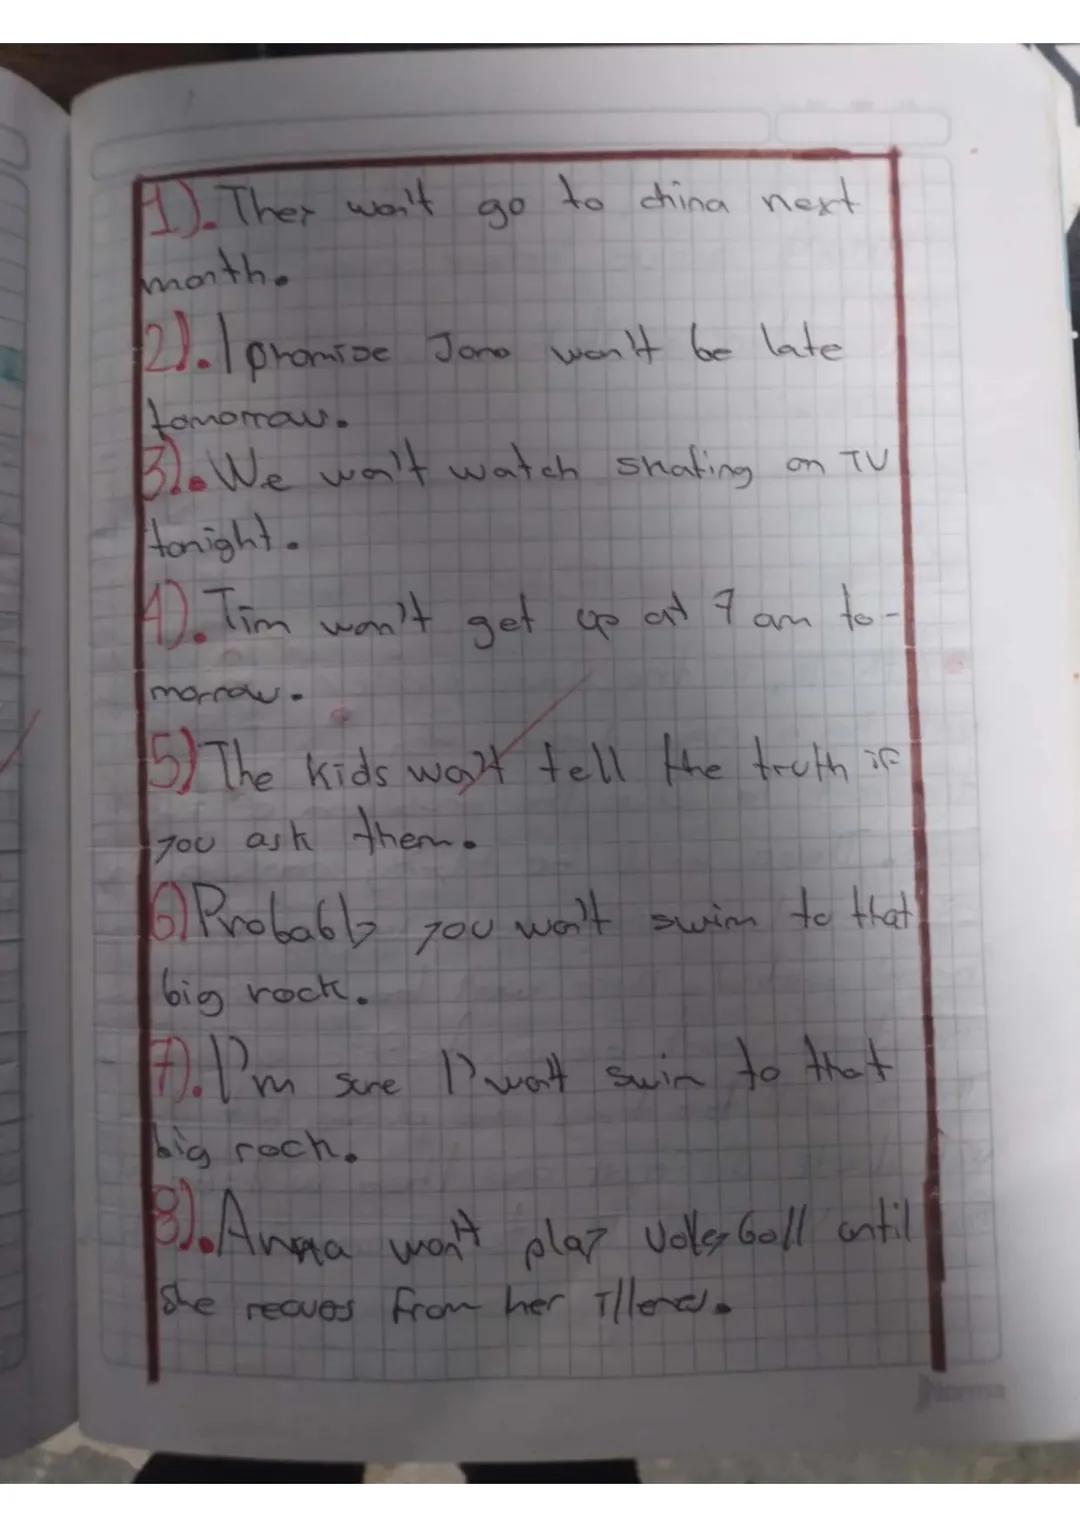 1). They won't go to china next
month.
2). I promise Jono won't be late
tomorrow.
3). We won't watch skating on TV
tonight.
4). Tim won't get up at 7 am to-
morrow.
5) The kids won't tell the truth if
you ask them.
6) Probably you won't swim to that
big rock.
7). I'm sure I' won't swin to that
big rock.
8). Anna won't play Volleyball until
she from her
Norma